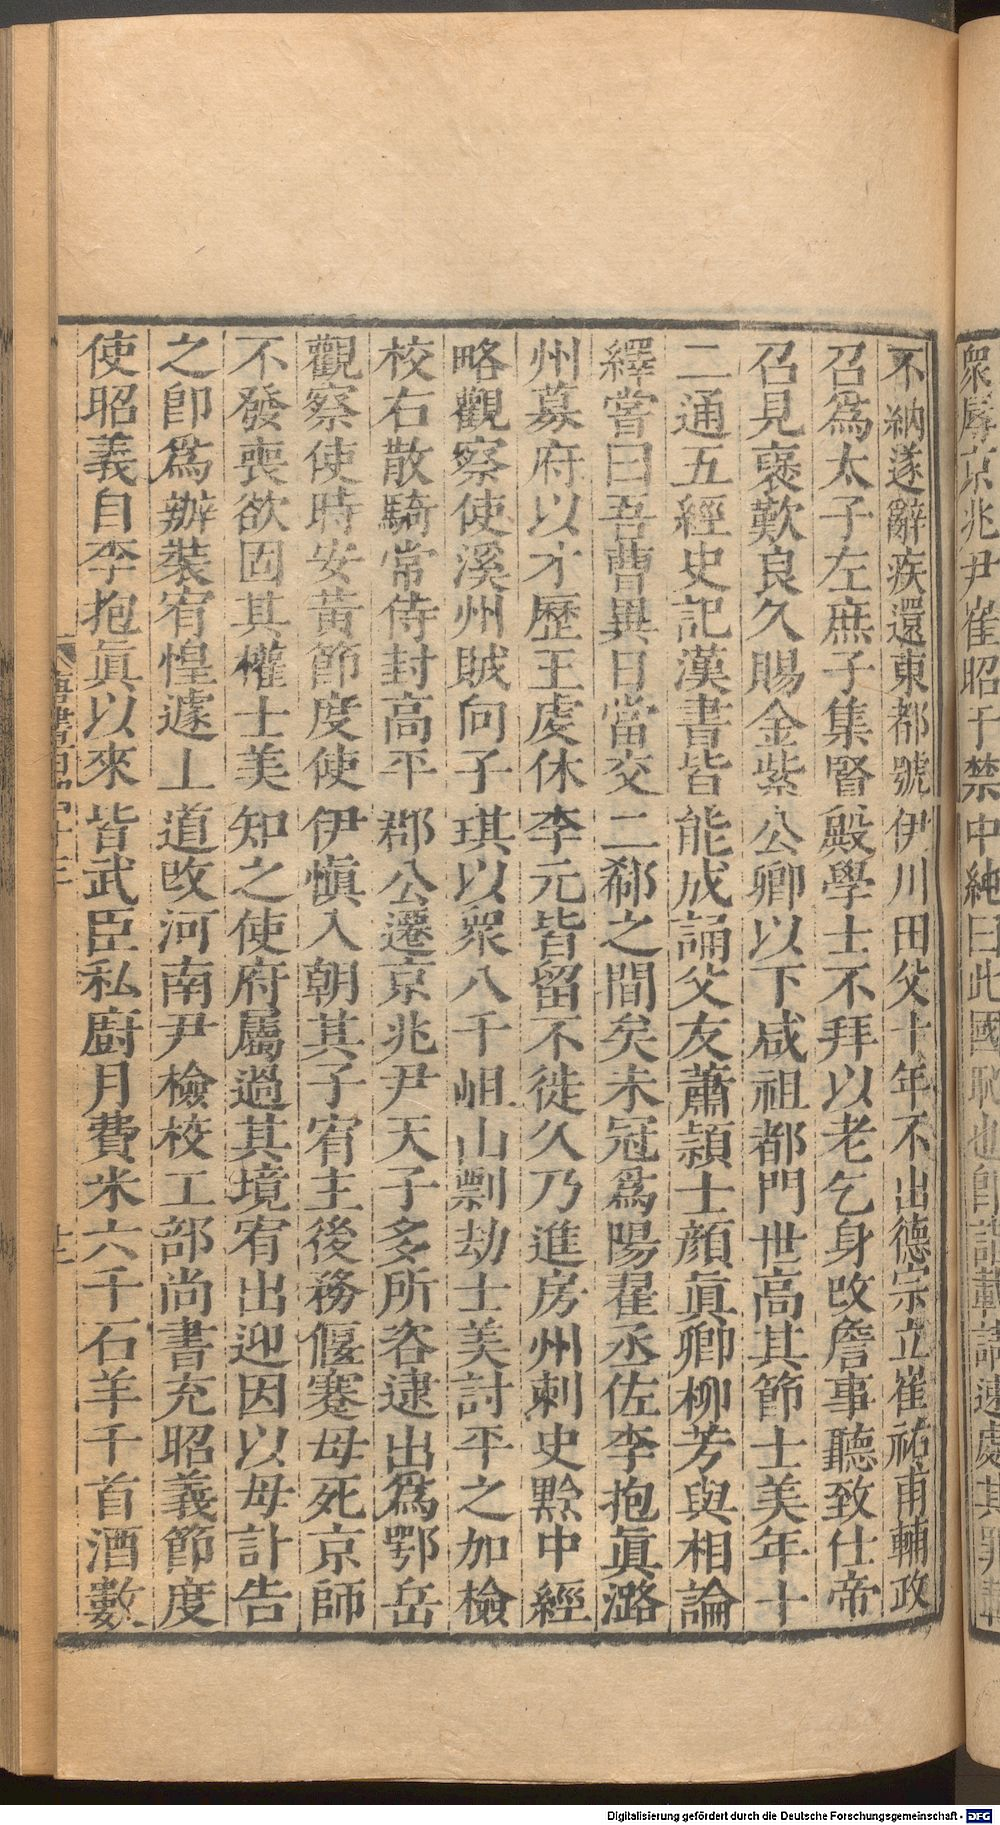 衆辱京兆尹崔昭于禁中純曰此國恥也卽請
不納遂辭疾還東都號伊川田父十年不出德宗立崔祐甫輔政
召爲太子左庶子集賢殿學士不拜以老乞身改詹事聽致仕帝
召見褒歎良久賜金紫公卿以下咸祖都門世高其節士美年十
二通五經史記漢書皆能成誦父友蕭頴士顔眞卿柳芳與相論
繹嘗曰吾曹異日當交二郗之間矣未冠爲陽翟丞佐李抱眞潞
州幕府以才歷王虔休李元皆留不徙久乃進房州刺史黔中經
略觀察使溪州賊向子琪以衆八千岨山剽劫士美討平之加檢
校右散騎常侍封高平郡公遷京兆尹天子多所咨逮出爲鄂岳
觀察使時安黃節度使伊愼入朝其子宥主後務偃蹇母死京師
不發喪欲固其權士美知之使府屬過其境宥出迎因以母訃告
之卽爲辦裝宥惶遽上道改河南尹檢校工部尚書充昭義節度
使昭義自李抱眞以來皆武臣私廚月費米六千石羊千首酒數
Digitalisierung gefördert durch die Deutsche Forschungsgemeinschaft - DFG